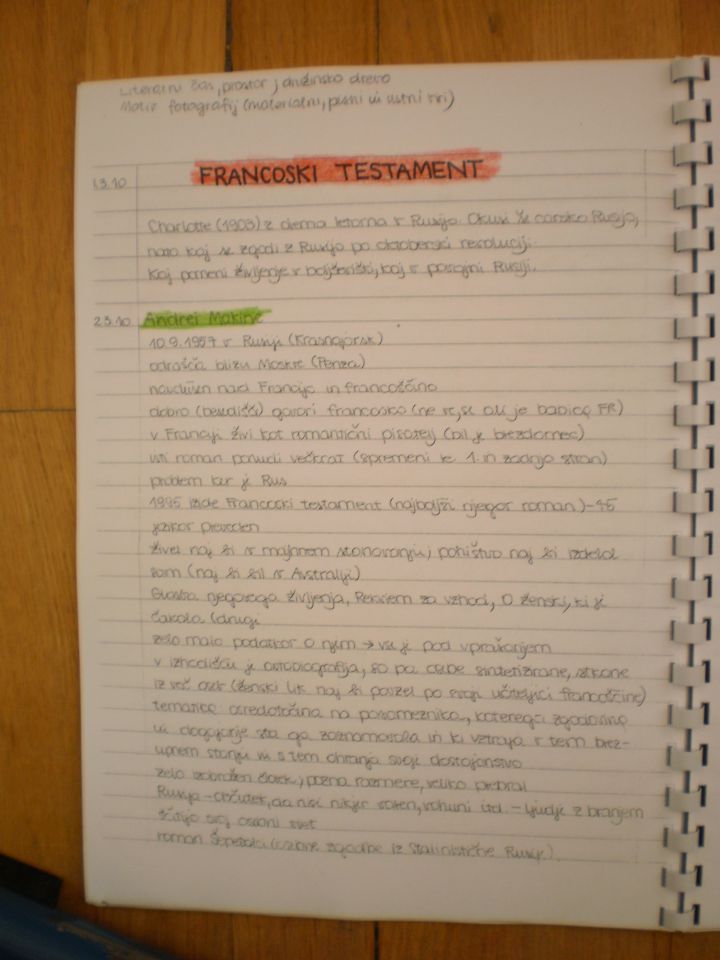 Literarni čas, prostor, družinsko drevo
Motiv fotografij (materialni, pisni in ustni viri)
13.10 FRANCOSKI TESTAMENT
Charlotte (1903) z dvema letoma v Rusijo. Okusi še carsko Rusijo,
nato kaj se zgodi z Rusijo po oktoberski revoluciji.
Kaj pomeni življenje v boljševiški, kaj v povojni Rusiji.
23.10 Andrei Makine
10.9.1957 v Rusiji (Krasnojarsk)
odrašča blizu Moskve (Penza)
navdušen nad Francijo in francoščino
dobro (besedišči) govori francosko (ne ve, se ali je babica FR)
v Franciji živi kot romantični pisatelj (bil je brezdomec)
isti roman ponudi večkrat (spremeni le 1. in zadnjo stran)
problem ker je Rus
1995 izide Francoski testament (najboljši njegov roman) - 45
jezikov preveden
živel naj bi v majhnem stanovanju, pohištvo naj bi izdelal
sam (naj bi bil v Avstraliji)
Glasba njegovega življenja, Rekviem za vzhod, O ženski, ki je
čakala (drugi
zelo malo podatkov o njem → vse je pod vprašanjem
v izhodišču je avtobiografija, so pa osebe sintetizirane, stkane
iz več oseb (ženski lik naj bi povzel po svoji učiteljici francoščine)
tematika: osredotočena na posameznika, katerega zgodovina
in dogajanje sta ga zaznamovala in ki vztraja v tem brez-
upnem stanju in s tem ohranja svoje dostojanstvo
zelo izobražen človek, pozna razmere, veliko prebral
Rusija - občutek, da nisi nikjer varen, vohuni itd. - ljudje z branjem
ščitijo svoj osebni svet
roman Šepetalci (osebne zgodbe iz Stalinistične Rusije).